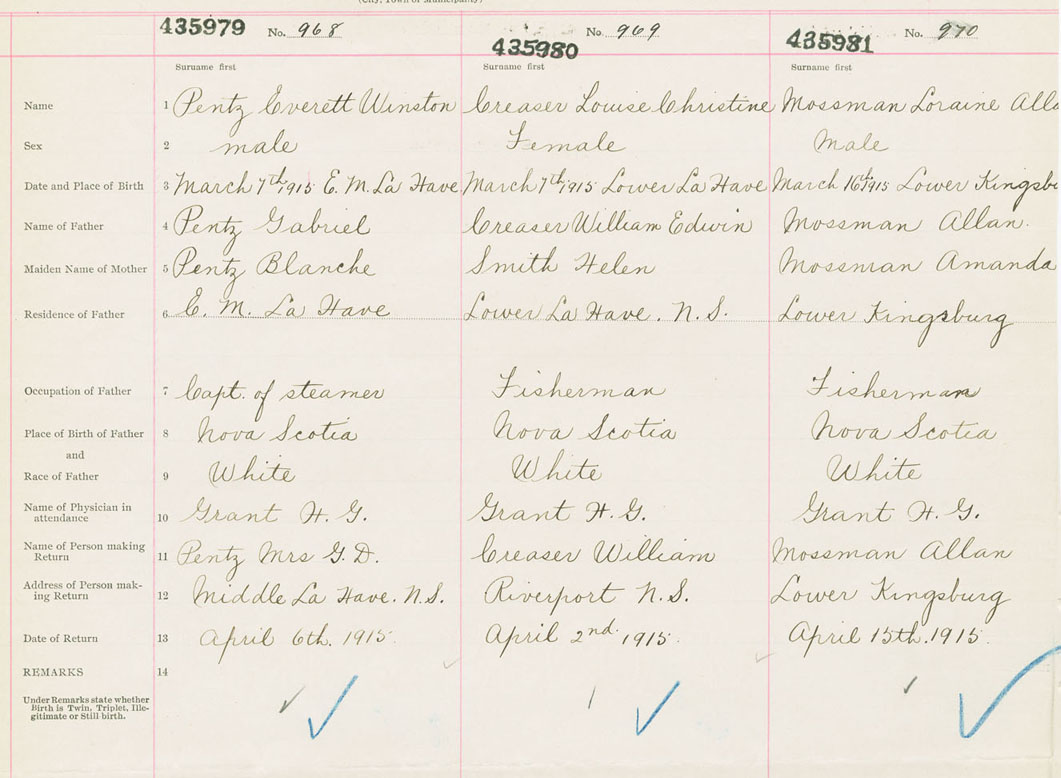 (City, Town or Municipality)
435979 No. 968 435980 No. 969 435981 No. 970
Surname first Surname first Surname first
Name 1 Pentz Everett Winston Creaser Louise Christine Mossman Loraine Alla
Sex 2 male Female Male
Date and Place of Birth 3 March 7th 1915 E. M. La Have March 7th 1915 Lower La Have March 16th 1915 Lower Kingsbu
Name of Father 4 Pentz Gabriel Creaser William Edwin Mossman Allan.
Maiden Name of Mother 5 Pentz Blanche Smith Helen Mossman Amanda
Residence of Father 6 E. M. La Have Lower La Have. N.S. Lower Kingsburg
Occupation of Father 7 Capt. of steamer Fisherman Fisherman
Place of Birth of Father 8 Nova Scotia Nova Scotia Nova Scotia
and
Race of Father 9 White White White
Name of Physician in
attendance 10 Grant H. G. Grant H. G. Grant H. G.
Name of Person making
Return 11 Pentz Mrs G. D. Creaser William Mossman Allan
Address of Person mak-
ing Return 12 Middle La Have. N.S. Riverport N.S. Lower Kingsburg
Date of Return 13 April 6th. 1915. April 2nd. 1915. April 15th. 1915.
REMARKS 14
Under Remarks state whether
Birth is Twin, Triplet, Ille-
gitimate or Still birth.